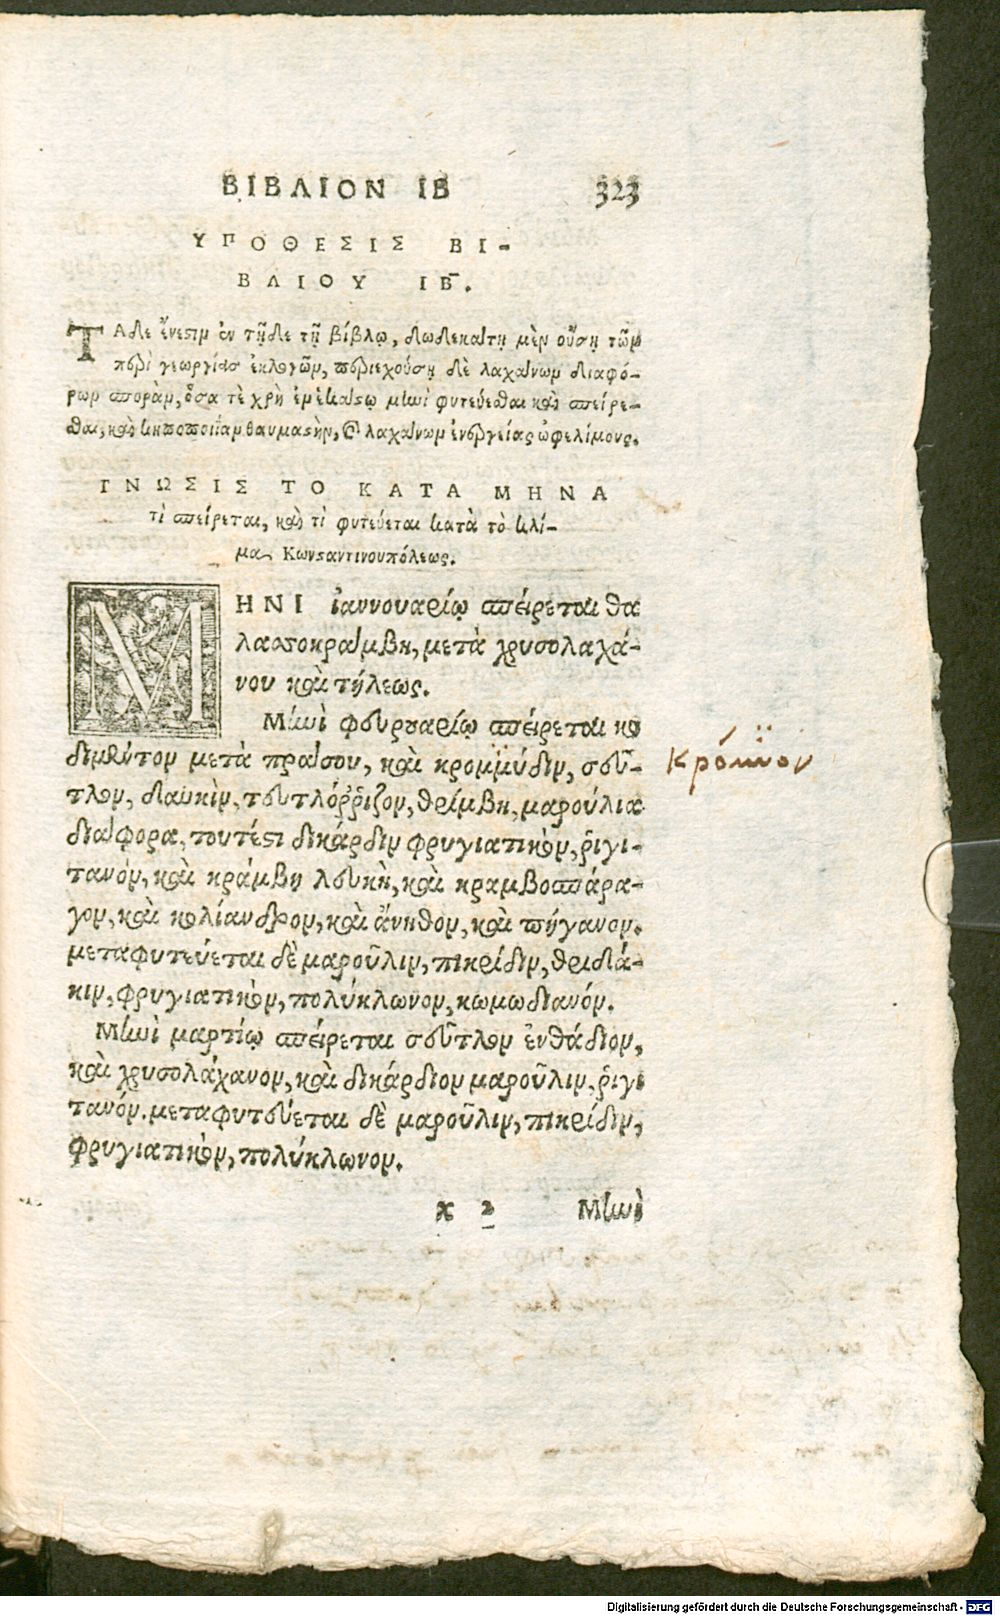 ΒΙΒΛΙΟΝ ΙΒ 323
ΥΠΟΘΕΣΙΣ ΒΙ-
ΒΛΙΟΥ ΙΒ̄.
ΤΑδε ἔνεστιν ἐν τῇδε τῇ βίβλῳ, δωδεκάτῃ μὲν οὔσῃ τῶν
περὶ γεωργίας ἐκλογῶν, περιεχούσῃ δὲ λαχάνων διαφό-
ρων σποράν, ὅσα τὲ χρὴ ἐμ ἑκάστῳ μηνὶ φυτεύεσθαι καὶ σπείρε-
σθαι, καὶ κηποποιίαν θαυμαστὴν, καὶ λαχάνων ἐνεργείας ὠφελίμους.
ΓΝΩΣΙΣ ΤΟ ΚΑΤΑ ΜΗΝΑ
τὶ σπείρεται, καὶ τὶ φυτεύεται κατὰ τὸ κλί-
μα Κωνσταντινουπόλεως.
ΜΗΝΙ ἰαννουαρίῳ σπείρεται θα
λασσοκράμβη, μετὰ χρυσολαχά-
νου καὶ τήλεως.
Μηνὶ φευρουαρίῳ σπείρεται κο
διμέντον μετὰ πράσου, καὶ κρομμύδιν, σεῦ-
τλον, δαυκὶν, τευτλόρριζον, θρίμβη, μαρούλια
διάφορα, τουτέστι δικάρδιν φρυγιατικὸν, ῥιγι-
τανόν, καὶ κράμβη λευκὴ, καὶ κραμβοσπάρα-
γον, καὶ κολίανδρον, καὶ ἄνηθον, καὶ πήγανον.
μεταφυτεύεται δὲ μαροῦλιν, πικρίδιν, θριδά-
κιν, φρυγιατικὸν, πολύκλωνον, κωμωδιανόν.
Μηνὶ μαρτίῳ σπείρεται σεῦτλον ἐνθάδιον,
καὶ χρυσολάχανον, καὶ δικάρδιον μαροῦλιν, ῥιγι
τανόν. μεταφυτεύεται δὲ μαροῦλιν, πικρίδιν,
φρυγιατικὸν, πολύκλωνον.
x 2 Μηνὶ